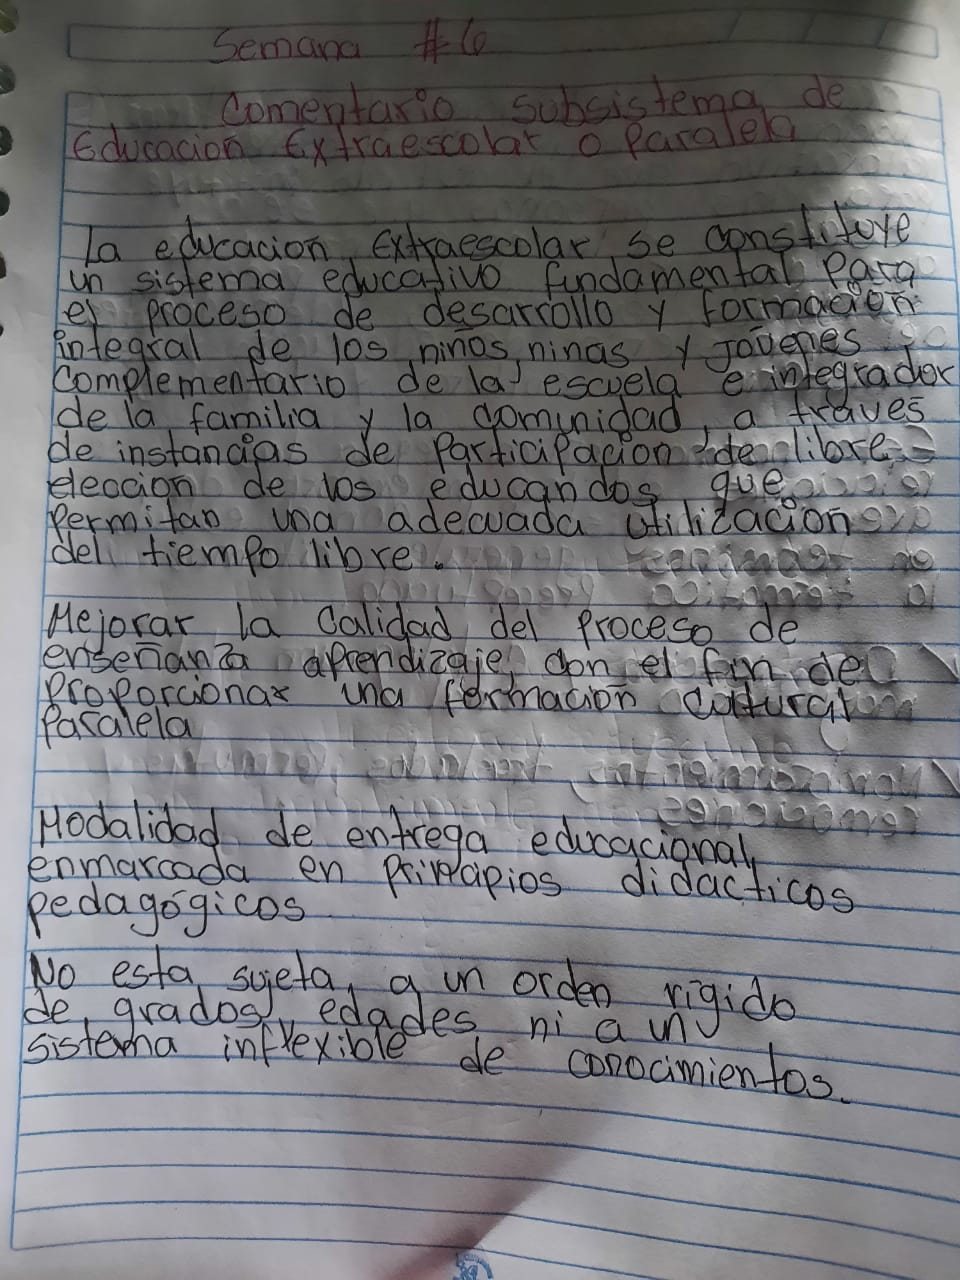 Semana #6
Comentario subsistema de
Educación Extraescolar o Paralela
La educacion Extraescolar se constituye
un sistema educativo fundamental para
el proceso de desarrollo y formación
integral de los niños, ninas y jóvenes
complementario de la escuela e integrador
de la familia y la comunidad, a traves
de instancias de participación de libre
elección de los educandos que
permitan una adecuada utilización
del tiempo libre.
Mejorar la calidad del proceso de
enseñanza aprendizaje, con el fin de
proporcionar una formación cultural
paralela
Modalidad de entrega educacional,
enmarcada en principios didacticos
pedagógicos
No esta sujeta a un orden rigido
de grados, edades ni a un
sistema inflexible de conocimientos.